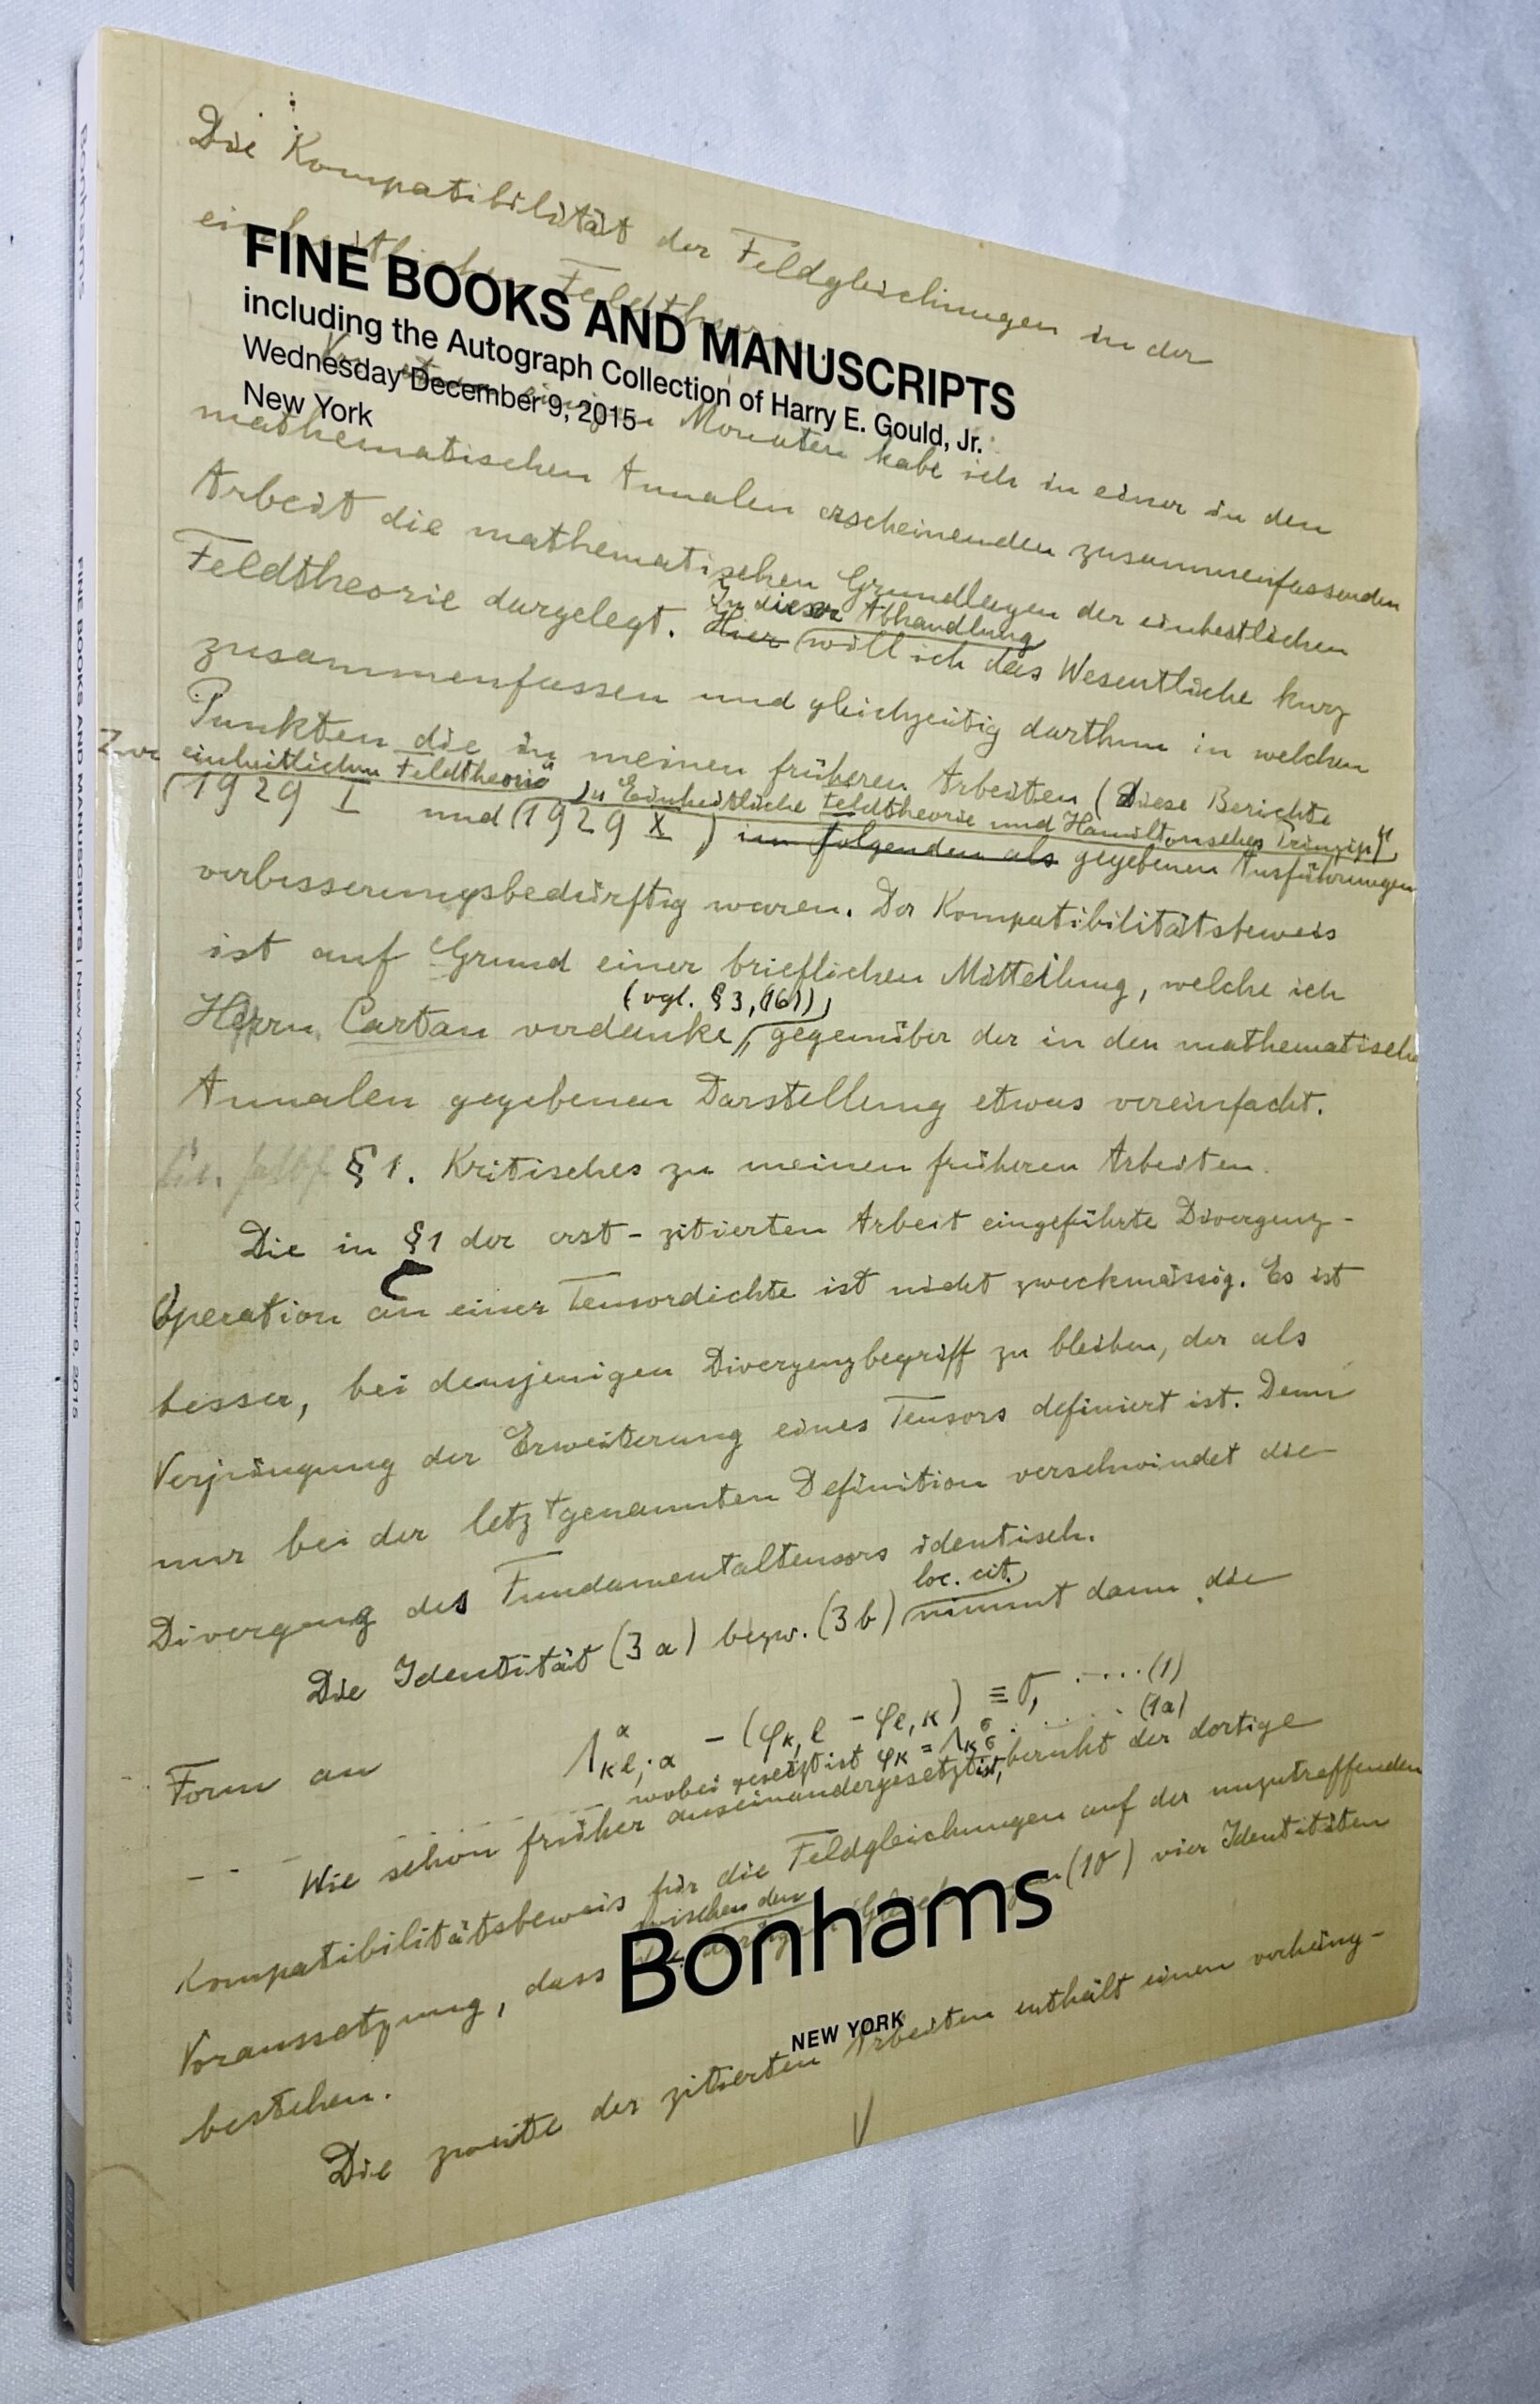 Die Kompatibilität der Feldgleichungen in der
einheitlichen Feldtheorie
FINE BOOKS AND MANUSCRIPTS
including the Autograph Collection of Harry E. Gould, Jr.
Wednesday December 9, 2015
New York
Monaten habe ich in einer in den
mathematischen Annalen erscheinenden zusammenfassenden
Arbeit die mathematischen Grundlagen der einheitlichen
In dieser Abhandlung
Feldtheorie dargelegt. Hier will ich das Wesentliche kurz
zusammenfassen und gleichzeitig darthun in welchen
Punkten die in meinen früheren Arbeiten (Diese Berichte
Zur einheitlichen Feldtheorie" "Einheitliche Feldtheorie und Hamiltonsches Prinzip"
(1929 I und (1929 X) im folgenden als gegebenen Ausführungen
verbesserungsbedürftig waren. Der Kompatibilitätsbeweis
ist auf Grund einer brieflichen Mitteilung, welche ich
(vgl. §3, (16))
Herrn Cartan verdanke, gegenüber der in den mathematischen
Annalen gegebenen Darstellung etwas vereinfacht.
§1. Kritisches zu meinen früheren Arbeiten.
Die in §1 der erst-zitierten Arbeit eingeführte Divergenz-
Operation an einer Tensordichte ist nicht zweckmässig. Es ist
besser, bei demjenigen Divergenzbegriff zu bleiben, der als
Verjüngung der Erweiterung eines Tensors definiert ist. Denn
nur bei der letztgenannten Definition verschwindet die
Divergenz des Fundamentaltensors identisch.
loc. cit.
Die Identität (3a) bezw. (3b) nimmt dann die
Form an
Λκl;α^α - (φκ,l - φl,κ) ≡ 0, ..... (1)
wobei gesetzt ist φκ = Λκσ^σ ...... (1a)
Wie schon früher auseinandergesetzt ist, beruht der dortige
Kompatibilitätsbeweis für die Feldgleichungen auf der unzutreffenden
zwischen den
Voraussetzung, dass (10) vier Identitäten
bestehen.
Bonhams
NEW YORK
Die zweite der zitierten Arbeiten enthält einen verhäng-
Bonhams
FINE BOOKS AND MANUSCRIPTS | New York, Wednesday December 9, 2015